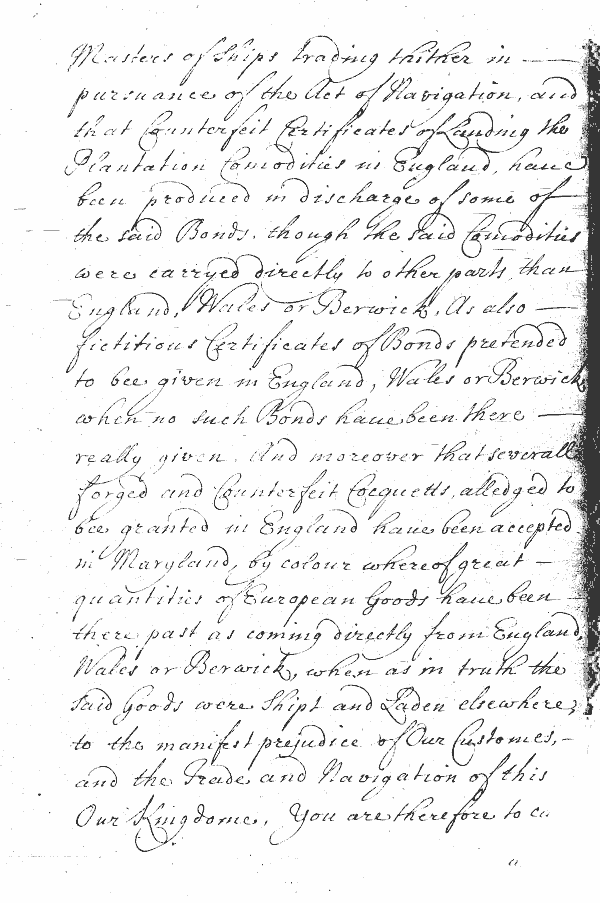 Masters of Ships trading thither in —
pursuance of the Act of Navigation, and
that Counterfeit Certificates of Landing the
Plantation Comodities in England, have
been produced in discharge of some of
the said Bonds, though the said Comodities
were carryed directly to other parts than
England, Wales or Berwick, As also —
fictitious Certificates of Bonds pretended
to bee given in England, Wales or Berwick
when no such Bonds have been there —
really given. And moreover that severall
forged and Counterfeit Cocquetts, alledged to
bee granted in England have been accepted
in Maryland, by colour whereof great —
quantities of European Goods have been
there past as coming directly from England,
Wales or Berwick, when as in truth the
said Goods were Shipt and Laden elsewhere;
to the manifest prejudice of Our Customes, –
and the Trade and Navigation of this
Our Kingdome. You are therefore to